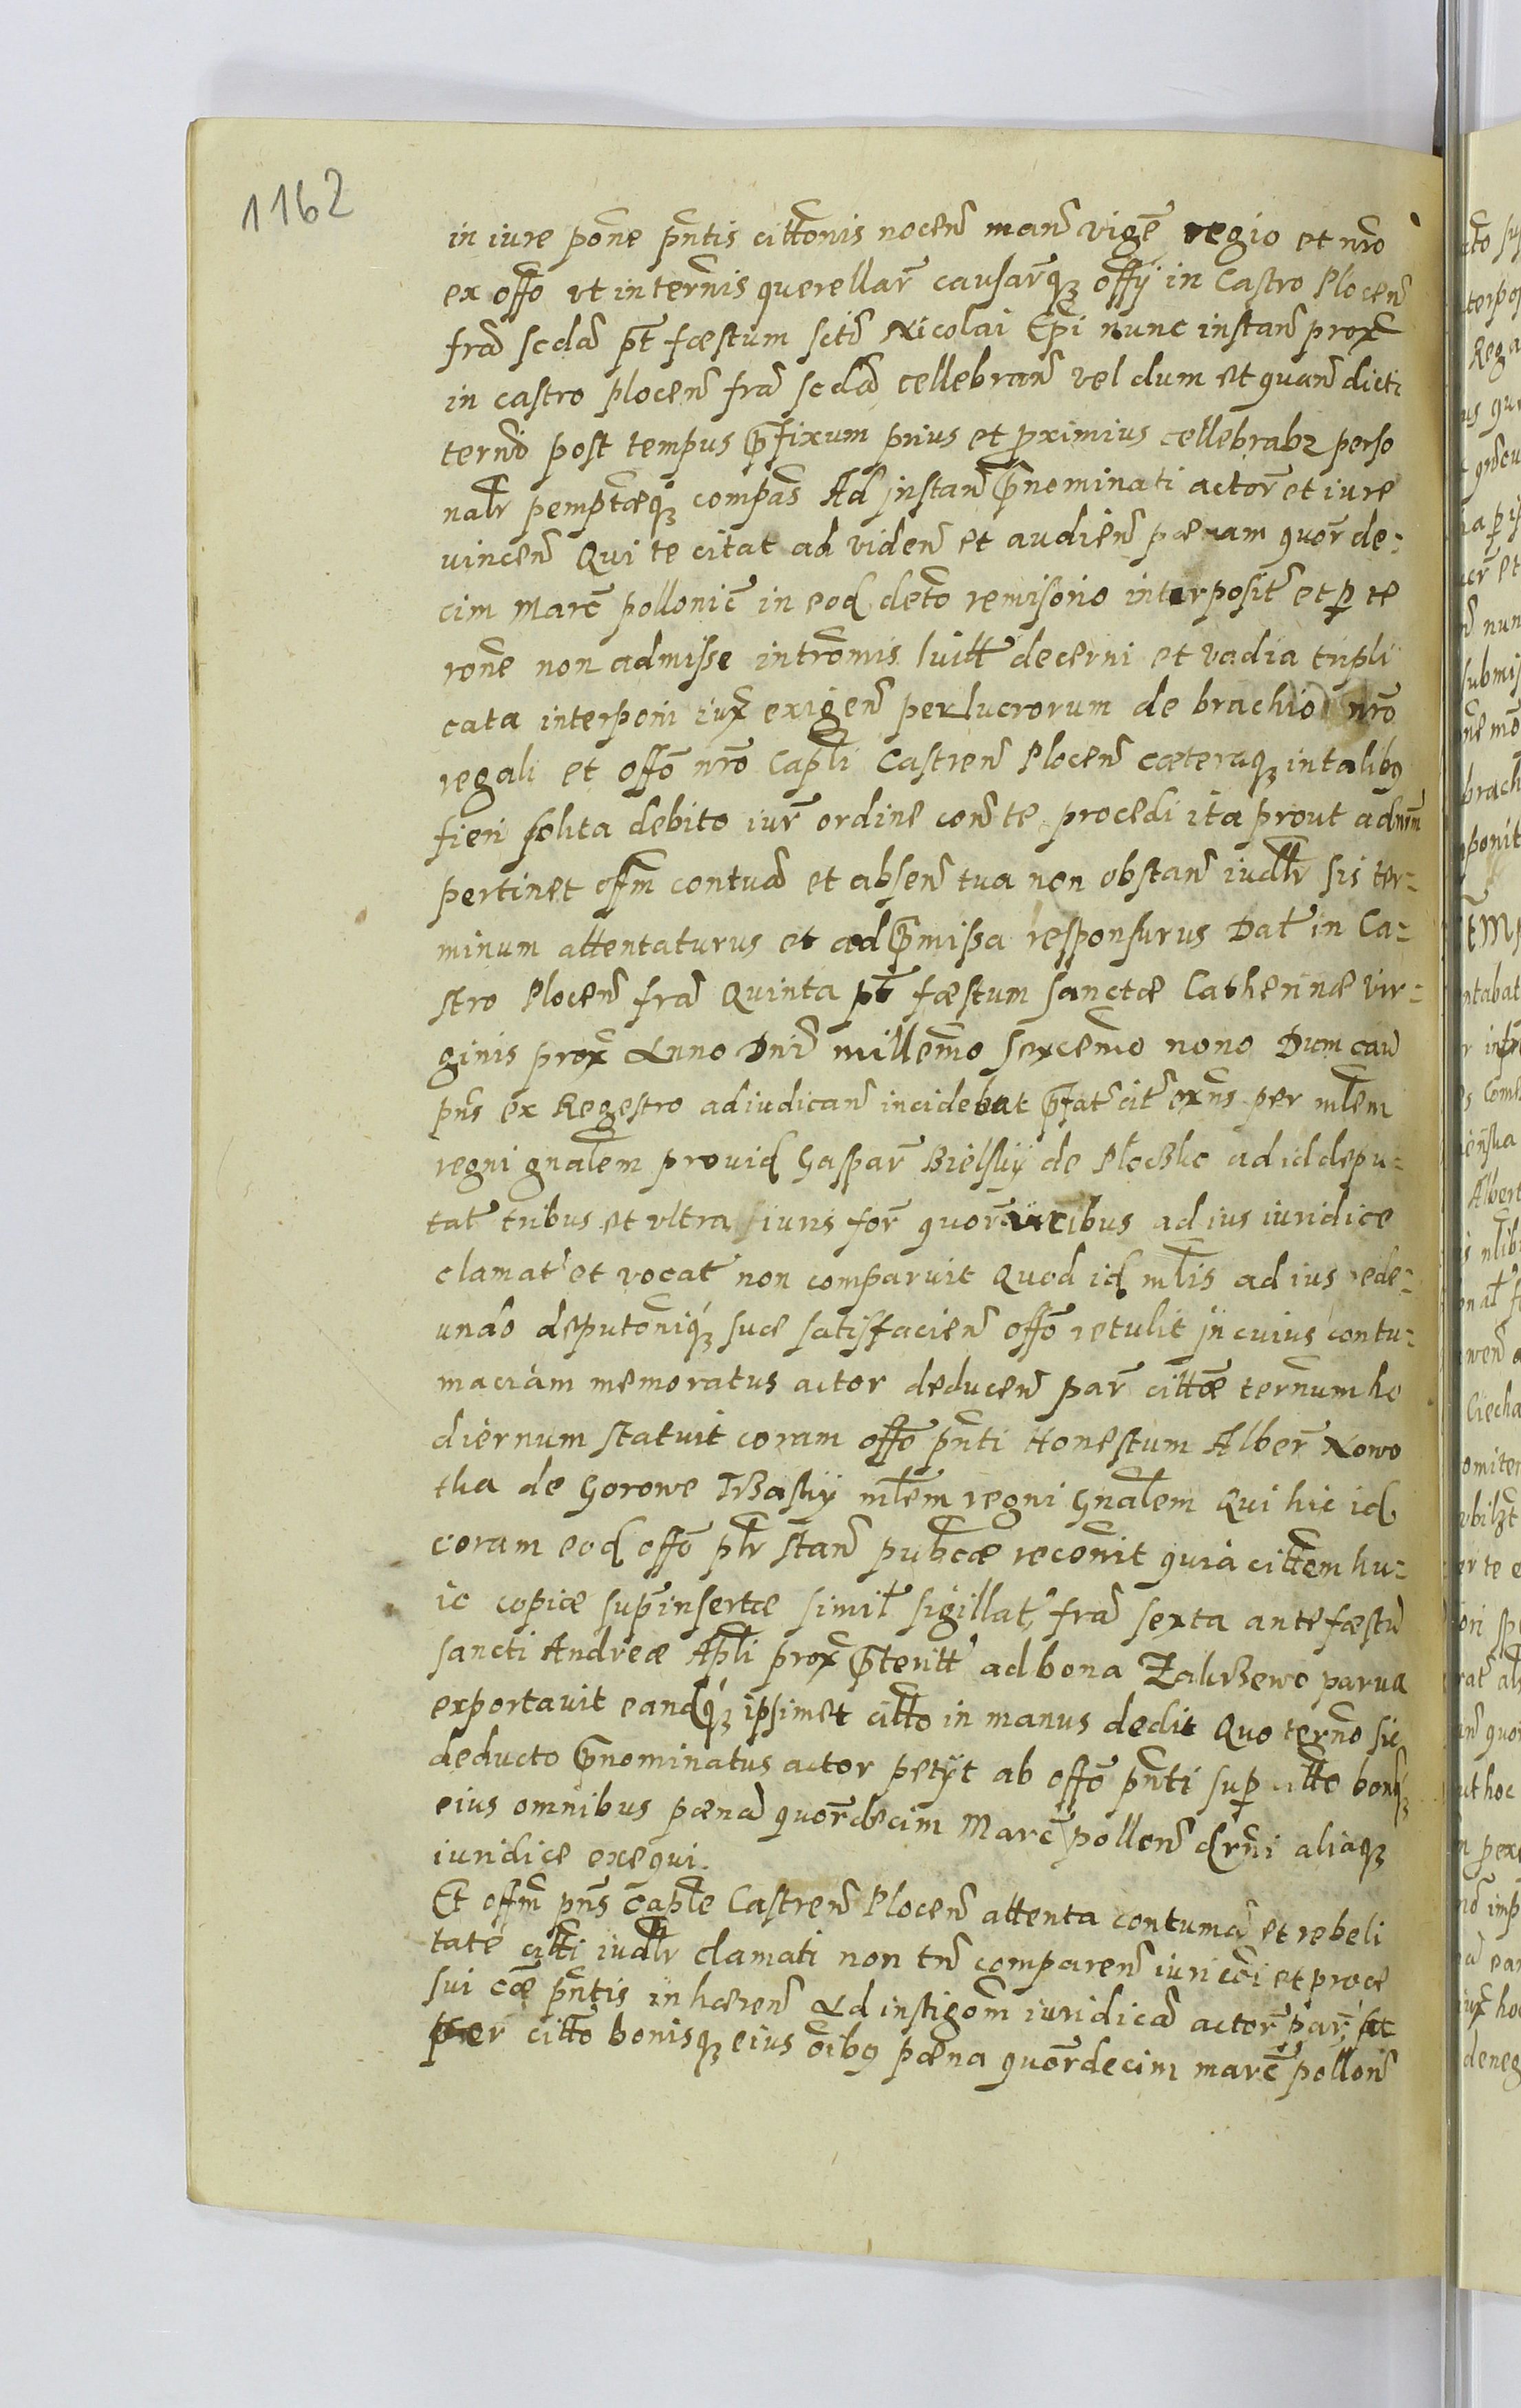 1162
in iure pone pntis cittonis nocen man vige regio et nro
ex offo ut in ternis querellar causarq offy in Castro Plocen
fra scda pt fæstum scti Nicolai Epi nunc instan prox
in castro plocen fra scda cellebran vel dum et quan dicti
terni post tempus pfixum prius et pximius cellebrabz perso
nalr pemptæq compas Ad instan pnominati actor et iure
vincen Qui te citat ad viden et audien pænam quor de-
cim Marc pollonic in eod deto remisorio interposit et p te
rone non admisse intromis luitt decerni et vadia tripli
cata interponi iux exigen per lucrorum de brachio nro
regali et offo nro Capli Castren Plocen cæteraq in talibq
fieri solita debito iur ordine con te procedi ita prout ad nrm
pertinet offm contua et absen tua non obstan iudlr sis ter-
minum attentaturus et ad pmissa responsurus Dat in Ca-
stro Plocen fra Quinta pt fæstum Sanctæ Catherinæ Vir-
ginis prox Anno Dni millemo sexcemo nono Dum cau
pns ex Regestro adiudican incidebat pfat cit exns per mlem
regni gnalem provid Gaspar Bielsky de Ploczko ad id depu-
tat tribus et ultra iuris for quor vicibus ad ius iuridice
clamat et vocat non comparuit Quod id mlis ad ius rede-
undo deputoniq suæ satisfacien offo retulit in cuius contu-
maciam memoratus actor deducen par cittoe ternum ho
diernum statuit coram offo pnti Honestum Alber Nowo
tka de Gorowe Trzasky mlem regni Gnalem Qui hic id
coram eod offo plr stan publcæ reconit quia cittem hu-
ic copiæ sup insertæ simil sigillat fra sexta ante fæstu
sancti Andreæ Apli prox pteritt ad bona Zakrzewo parva
exportavit eandq ipsimet citto in manus dedit Quo terno sic
deducto pnominatus actor petyt ab offo pnti sup citto bonisq
eius omnibus pæna quordecim Marc pollon drni aliaq
iuridice exequi.
Et offm pns Caple Castren Plocen attenta contuma et rebeli
tate citti iudlr clamati non tn comparen iuri coi et proce
sui cae pntis inhæren Ad instigom iuridica actor par
per citto bonisq eius oibq pæna quordecim marc pollon